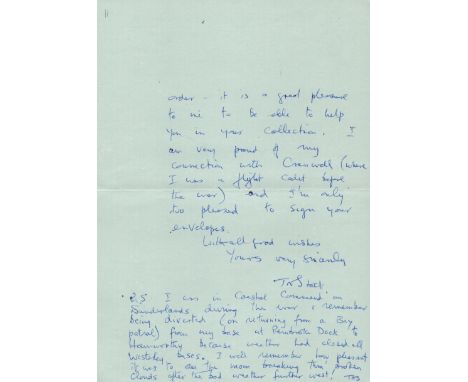 11
order - it is a great pleasure
to me to be able to help
you in your collection. I
am very proud of my
connection with Cranwell (where
I was a flight cadet before
the war) and I'm only
too pleased to sign your
envelopes.
With all good wishes
Yours very sincerely
P.S I was in Coastal Command on
Sunderlands during the war & remember
being diverted (on returning from a Bay
patrol) from my base at Pembroke Dock to
Hamworthy because weather had closed all
Westerly bases. I well remember how pleasant
it was to see the moon breaking thro' broken
clouds after the bad weather further west!